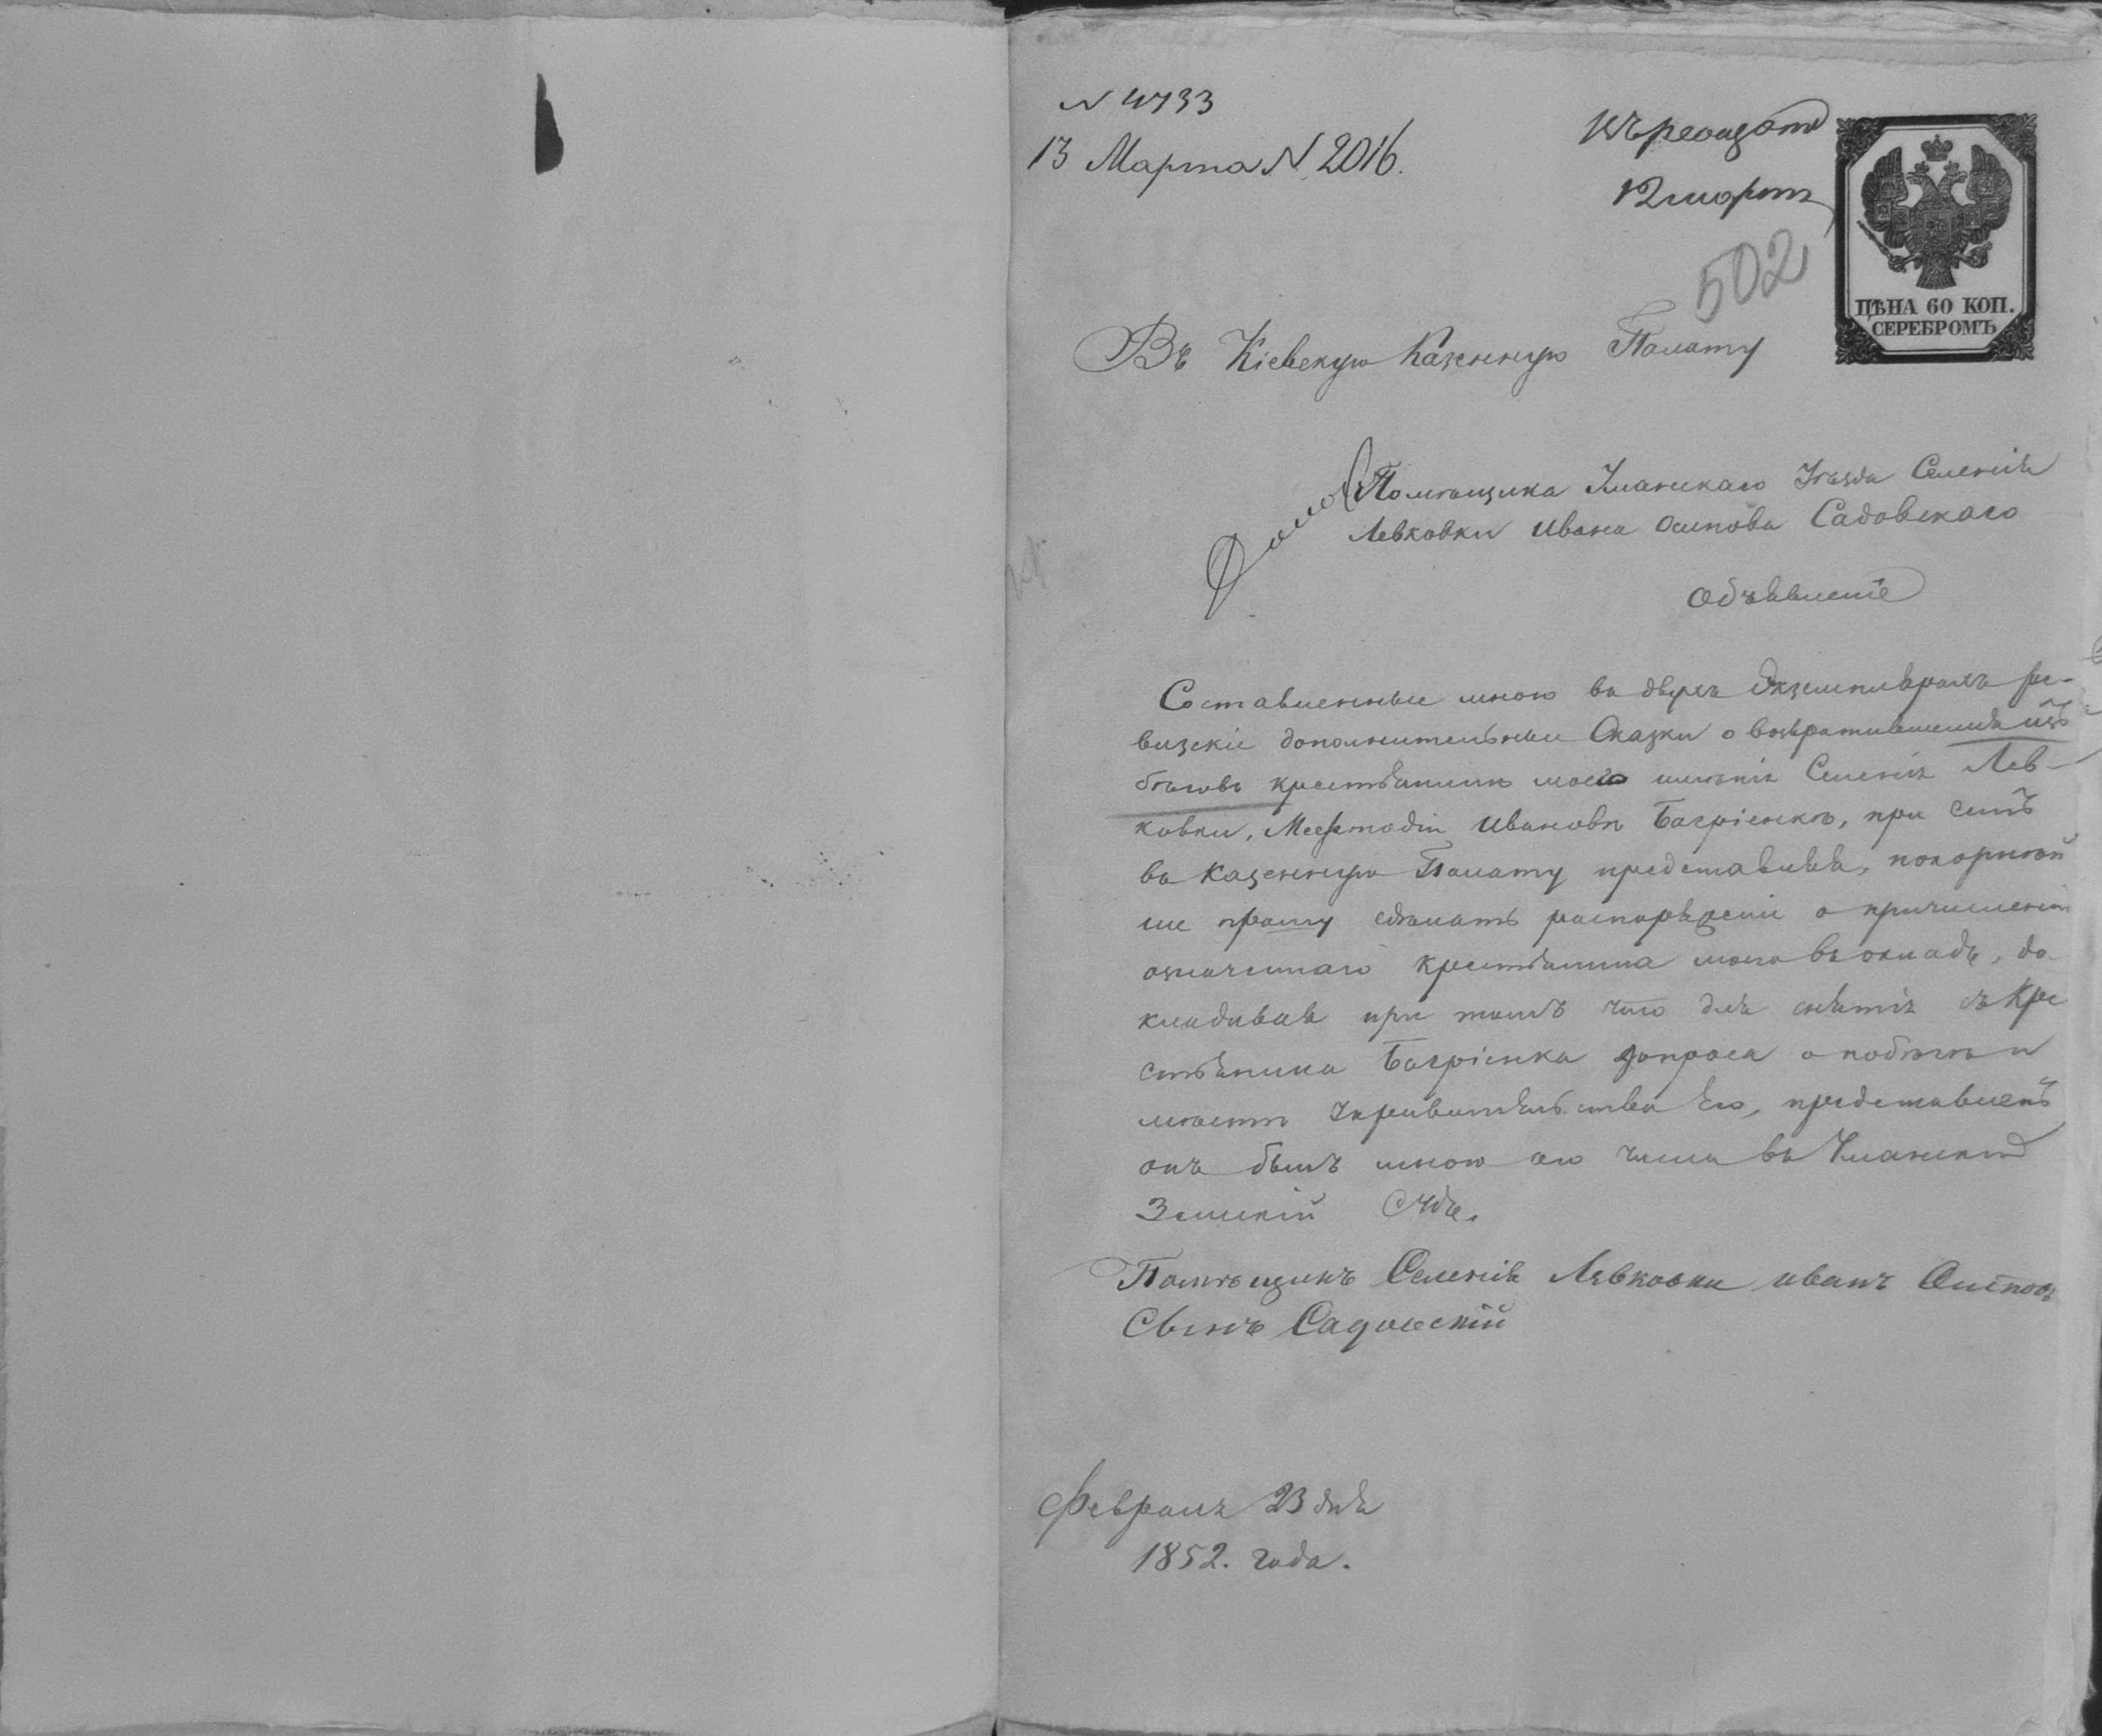 N 4733
13 Марта N 2016.
12 марта
502
ЦѢНА 60 КОП.
СЕРЕБРОМЪ
Въ Кіевскую Казенную Палату
Помѣщика Уманскаго Уѣзда Селенія
Левковки Ивана Осипова Садовскаго
Объявленіе
Составленные мною въ двухъ Экземплярахъ ре-
визскіе дополнительные Сказки о возвратившемся изъ
бѣговъ крестьянинѣ моего имѣнія Селенія Лев-
ковки, Мефтодіи Ивановѣ Багріенкѣ, при семъ
въ Казенную Палату представляя, покорнѣй
ше прошу сдѣлать распоряженіе о причисленіи
означеннаго крестьянина моего въ окладъ, до-
кладывая при томъ что для снятія съ Кре
стьянина Багріенка допроса о побѣгѣ и
мѣстѣ укрывательства Его, представленъ
онъ былъ мною сего числа въ Уманскій
Земскій Судъ.
Помѣщикъ Селенія Лявковки иванъ Осиповъ
Сынъ Садовскій
Февраля 23 дня
1852. года.